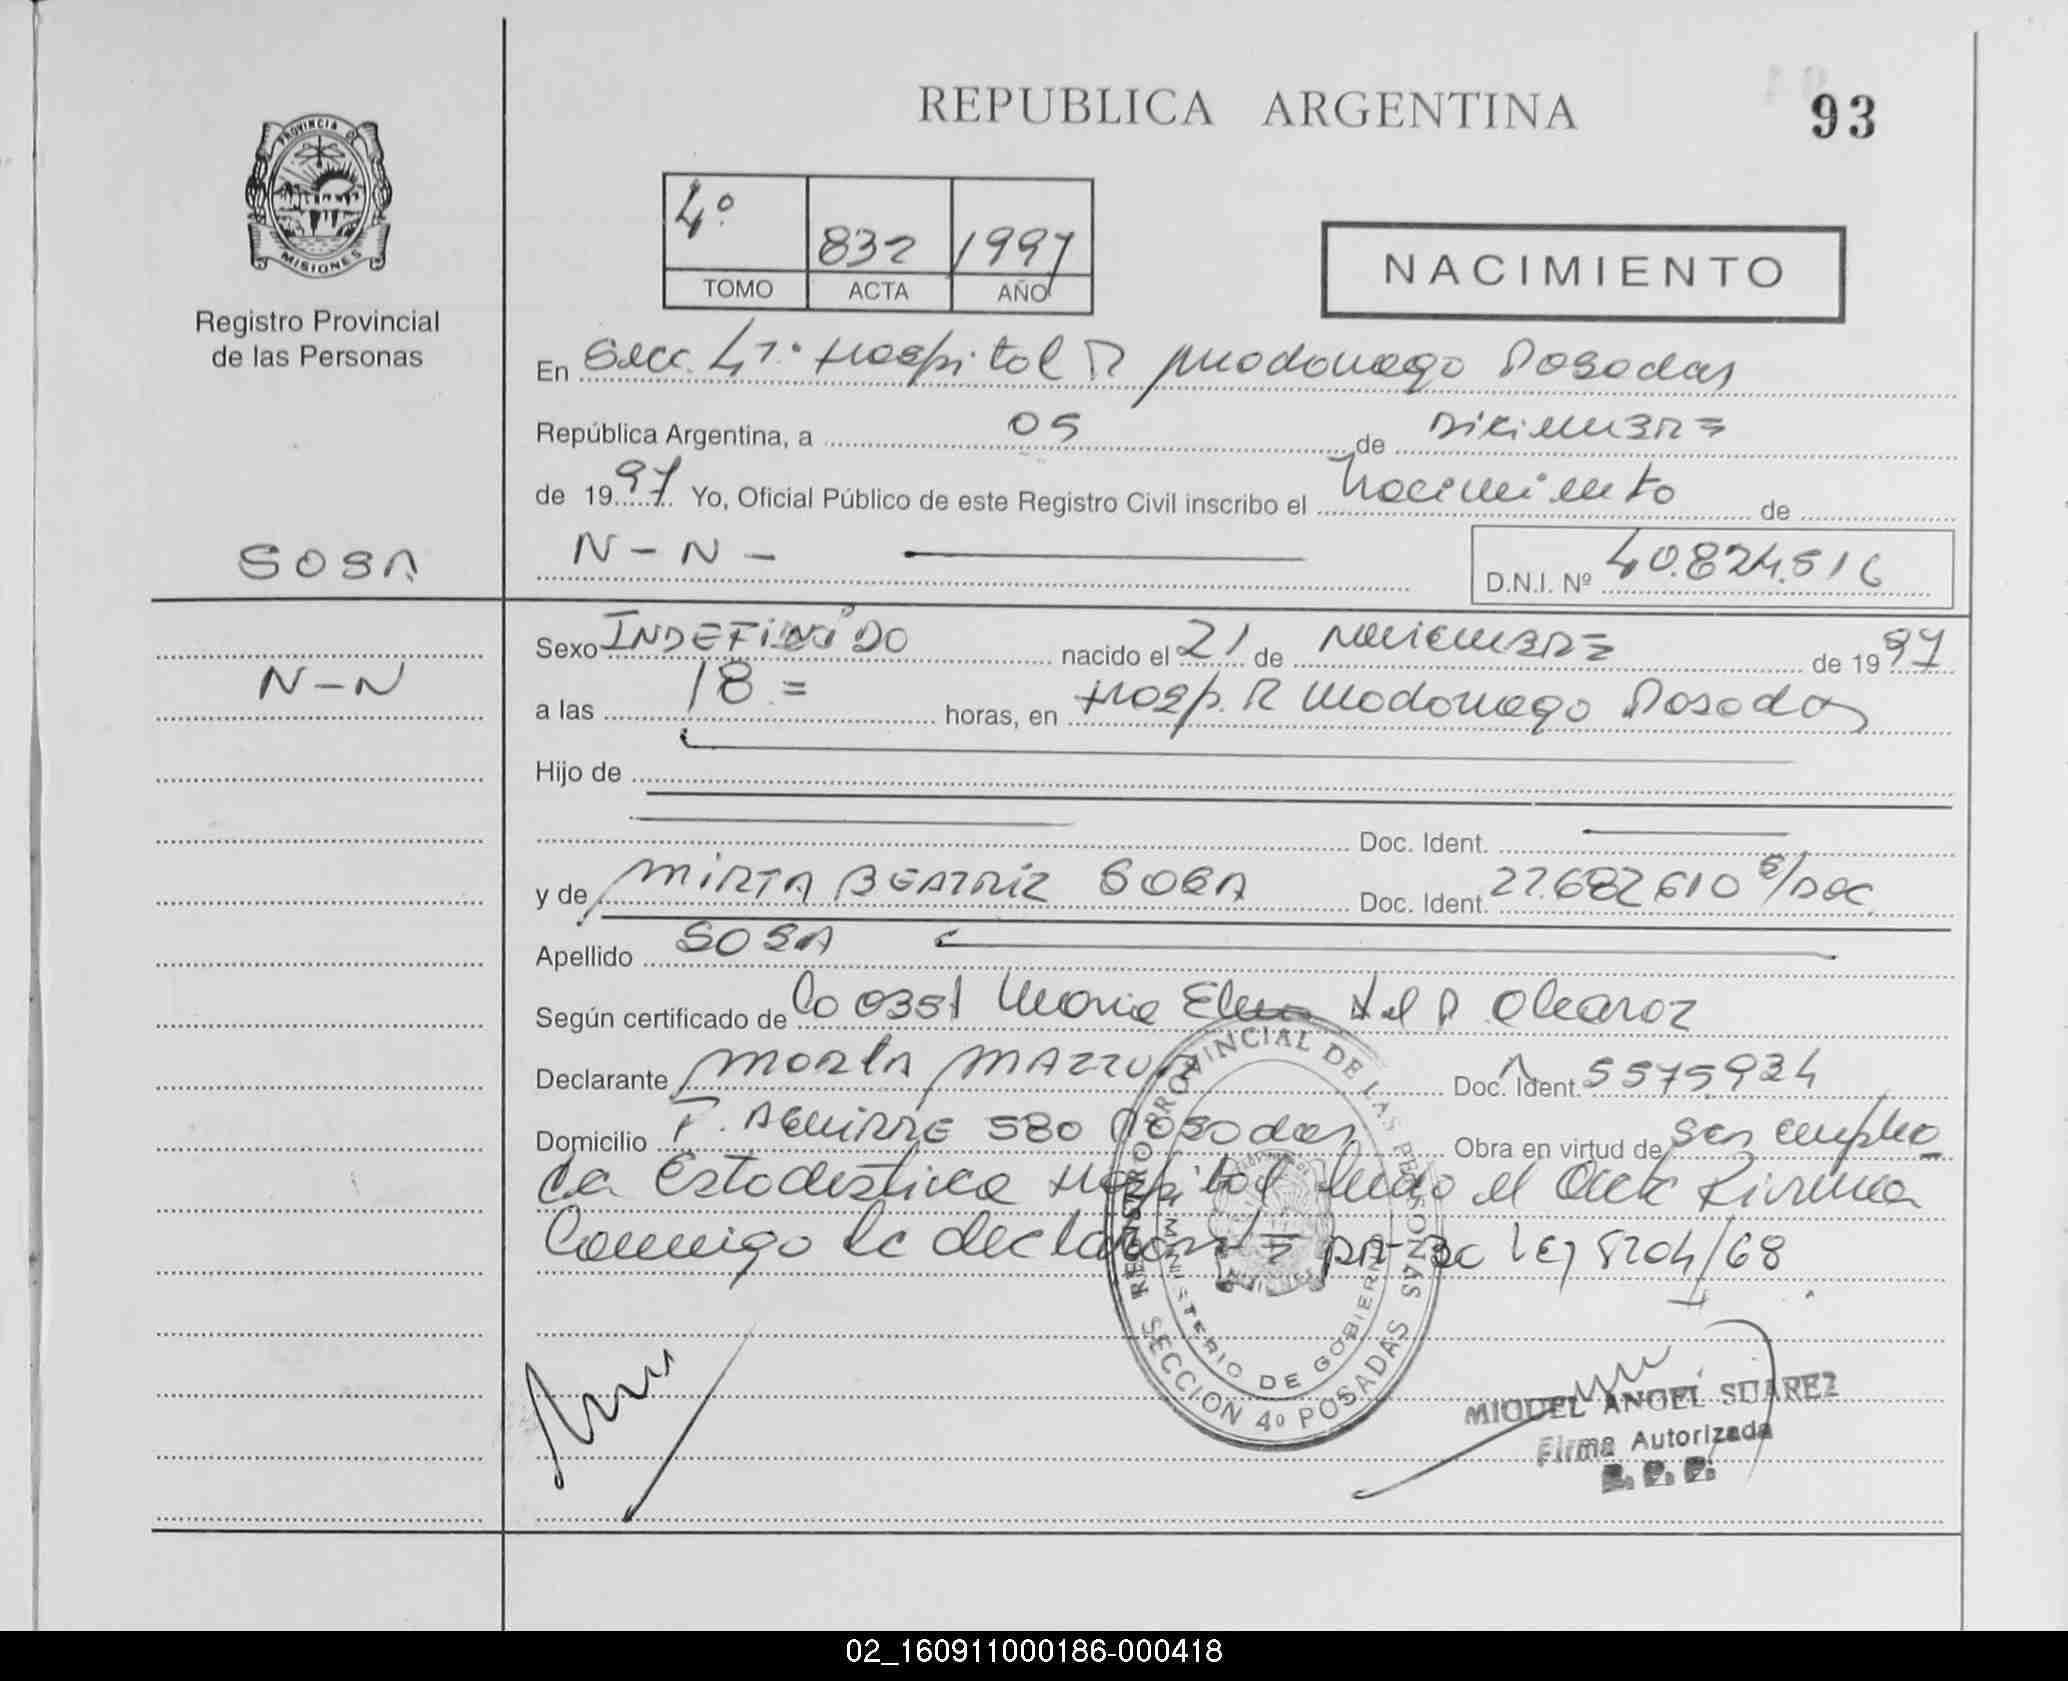 REPUBLICA ARGENTINA
93
PROVINCIA DE
MISIONES
Registro Provincial
de las Personas
4º 832 1997
TOMO ACTA AÑO
NACIMIENTO
En Secc 4º Hospital R Madariaga Posadas
República Argentina, a 05 de Diciembre
de 1997 Yo, Oficial Público de este Registro Civil inscribo el Nacimiento de
SOSA
N - N -
D.N.I. Nº 40.824.516
Sexo INDEFINIDO nacido el 21 de Noviembre de 1997
N-N
a las 18 = horas, en Hosp. R Madariaga Posadas
Hijo de
Doc. Ident.
y de MIRTA BEATRIZ SOSA Doc. Ident. 22.682610 S/Doc
Apellido SOSA
Según certificado de Co 0351 Maria Elena del P Alcaroz
Declarante MORLA Doc. Ident. 5575934
Domicilio F. AGUIRRE 580 Posadas Obra en virtud de ser emplea
da Estadistica Hospital leido el Acta Firma
Conmigo la declarante = 30 Ley 8204/68
REGISTRO PROVINCIAL DE LAS PERSONAS
MINISTERIO DE GOBIERNO
SECCION 4º POSADAS
MIGUEL ANGEL SUAREZ
Firma Autorizada
02_160911000186-000418